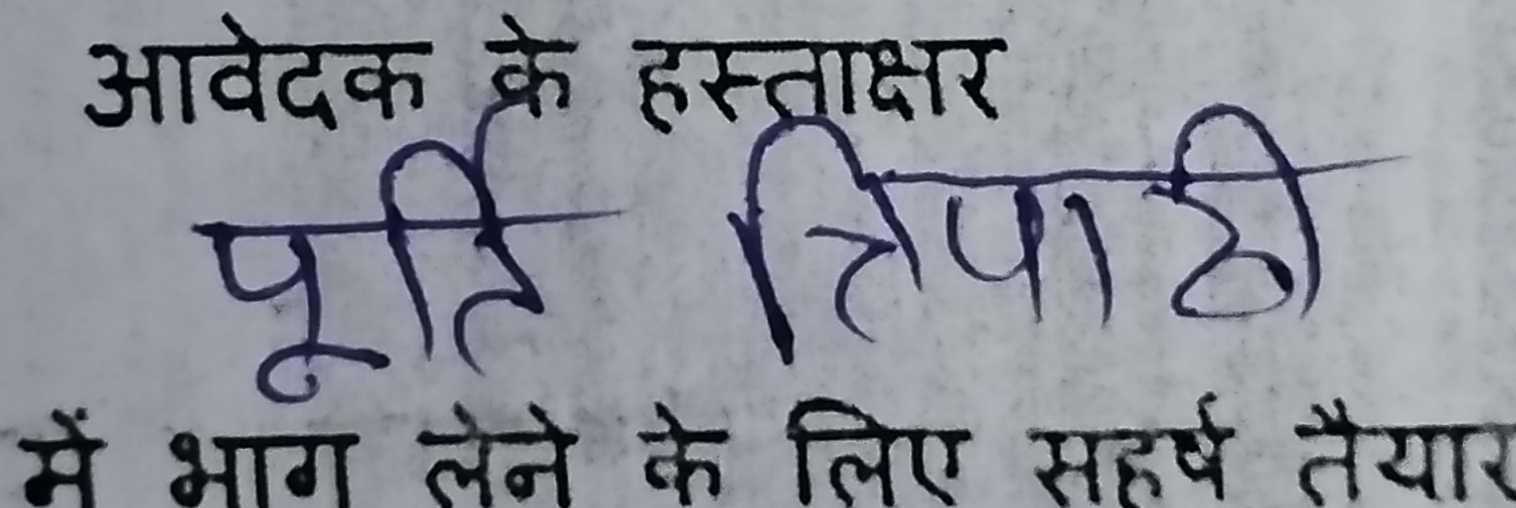 आवेदक के हस्ताक्षर
पूर्ति त्रिपाठी
में भाग लेने के लिए सहर्ष तैयार